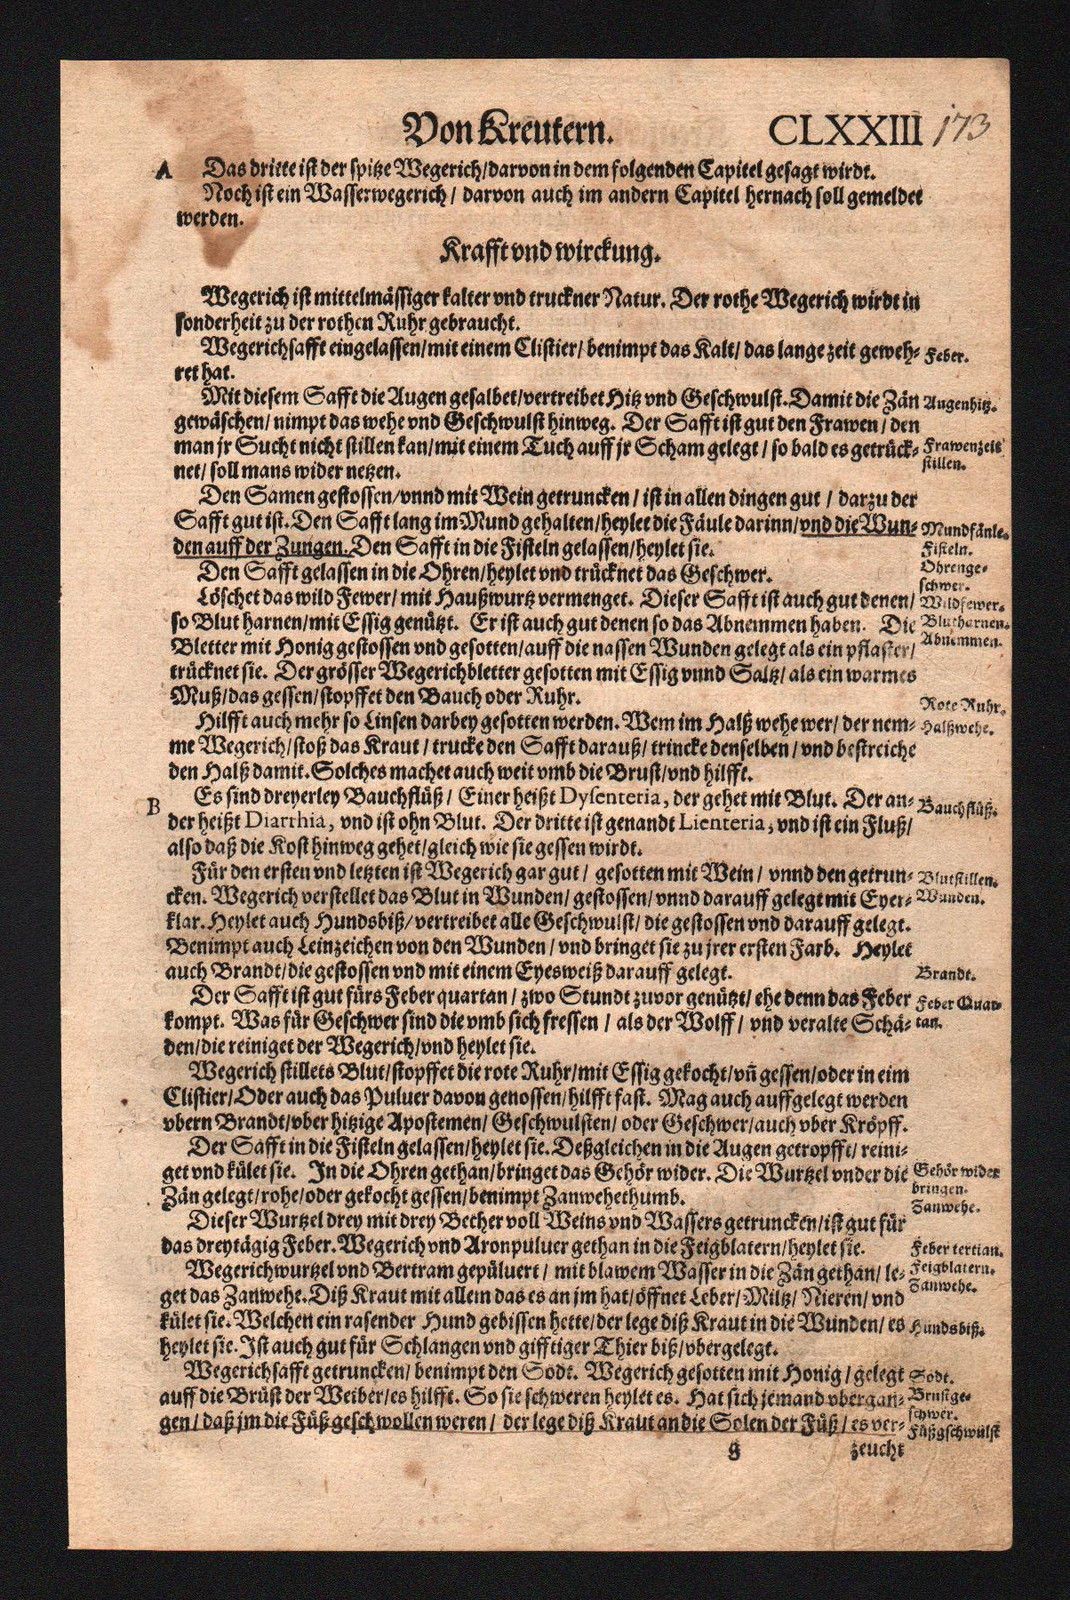 Von Kreutern. CLXXIII 173
A Das dritte ist der spitze Wegerich/darvon in dem folgenden Capitel gesagt wirdt.
Noch ist ein Wasserwegerich / darvon auch im andern Capitel hernach soll gemeldet
werden.
Krafft vnd wirckung.
Wegerich ist mittelmässiger kalter vnd truckner Natur. Der rothe Wegerich wirdt in
sonderheit zu der rothen Ruhr gebraucht.
Wegerichsafft eingelassen/mit einem Clistier/ benimpt das Kalt/ das lange zeit geweh- Feber.
ret hat.
Mit diesem Safft die Augen gesalbet/vertreibet Hitz vnd Geschwulst. Damit die Zän Augenhitz.
gewäschen/ nimpt das wehe vnd Geschwulst hinweg. Der Safft ist gut den Frawen/ den
man jr Sucht nicht stillen kan/mit einem Tuch auff jr Scham gelegt / so bald es getrück- Frawenzeit
net/ soll mans wider netzen. stillen.
Den Samen gestossen/vnnd mit Wein getruncken / ist in allen dingen gut / darzu der
Safft gut ist. Den Safft lang im Mund gehalten/heylet die Fäule darinn/vnd die Wun- Mundfänle.
den auff der Zungen. Den Safft in die Fisteln gelassen/heylet sie. Fisteln.
Den Safft gelassen in die Ohren/heylet vnd trücknet das Geschwer. Ohrenge-
schwer.
Löschet das wild Fewer/ mit Haußwurtz vermenget. Dieser Safft ist auch gut denen/ Wildfewer.
so Blut harnen/mit Essig genützt. Er ist auch gut denen so das Abnemmen haben. Die Blutharnen.
Bletter mit Honig gestossen vnd gesotten/auff die nassen Wunden gelegt als ein pflaster/ Abnemmen.
trücknet sie. Der grösser Wegerichbletter gesotten mit Essig vnnd Saltz/ als ein warmes
Muß/das gessen/stopffet den Bauch oder Ruhr. Rote Ruhr.
Hilfft auch mehr so Linsen darbey gesotten werden. Wem im Halß wehe wer/ der nem- Halßwehe.
me Wegerich/stoß das Kraut / trucke den Safft darauß/ trincke denselben/ vnd bestreiche
den Halß damit. Solches machet auch weit vmb die Brust/vnd hilfft.
B Es sind dreyerley Bauchflüß/ Einer heißt Dysenteria, der gehet mit Blut. Der an- Bauchflüß.
der heißt Diarrhia, vnd ist ohn Blut. Der dritte ist genandt Lienteria, vnd ist ein Fluß/
also daß die Kost hinweg gehet/gleich wie sie gessen wirdt.
Für den ersten vnd letzten ist Wegerich gar gut / gesotten mit Wein / vnnd den getrun- Blutstillen.
cken. Wegerich verstellet das Blut in Wunden/ gestossen/vnnd darauff gelegt mit Eyer- Wunden.
klar. Heylet auch Hundsbiß/vertreibet alle Geschwulst/ die gestossen vnd darauff gelegt.
Benimpt auch Leinzeichen von den Wunden / vnd bringet sie zu jrer ersten Farb. Heylet
auch Brandt/die gestossen vnd mit einem Eyesweiß darauff gelegt. Brandt.
Der Safft ist gut fürs Feber quartan / zwo Stundt zuvor genützt/ ehe denn das Feber Feber Quar-
kompt. Was für Geschwer sind die vmb sich fressen / als der Wolff / vnd veralte Schä- tan.
den/die reiniget der Wegerich/vnd heylet sie.
Wegerich stillets Blut/stopffet die rote Ruhr/mit Essig gekocht/vñ gessen/oder in eim
Clistier/Oder auch das Puluer davon genossen/hilfft fast. Mag auch auffgelegt werden
vbern Brandt/vber hitzige Apostemen/ Geschwulsten/ oder Geschwer/auch vber Kröpff.
Der Safft in die Fisteln gelassen/heylet sie. Deßgleichen in die Augen getropfft/ reini-
get vnd kület sie. In die Ohren gethan/bringet das Gehör wider. Die Wurtzel vnder die Gehör wider
bringen.
Zän gelegt/rohe/oder gekocht gessen/benimpt Zanwehethumb. Zanwehe.
Dieser Wurtzel drey mit drey Becher voll Weins vnd Wassers getruncken/ist gut für
das dreytägig Feber. Wegerich vnd Aronpuluer gethan in die Feigblatern/heylet sie. Feber tertian.
Wegerichwurtzel vnd Bertram gepüluert / mit blawem Wasser in die Zän gethan/ le- Feigblatern.
get das Zanwehe. Diß Kraut mit allem das es an jm hat/öffnet Leber/ Miltz/ Nieren/ vnd Zanwehe.
kület sie. Welchen ein rasender Hund gebissen hette/der lege diß Kraut in die Wunden/ es Hundsbiß.
heylet sie. Ist auch gut für Schlangen vnd gifftiger Thier biß/vbergelegt.
Wegerichsafft getruncken/ benimpt den Södt. Wegerich gesotten mit Honig / gelegt Sodt.
auff die Brüst der Weiber/es hilfft. So sie schweren heylet es. Hat sich jemand vbergan- Brustge-
schwer.
gen / daß jm die Füß geschwollen weren / der lege diß Kraut an die Solen der Füß/ es ver- Füßgschwulst
g zeucht